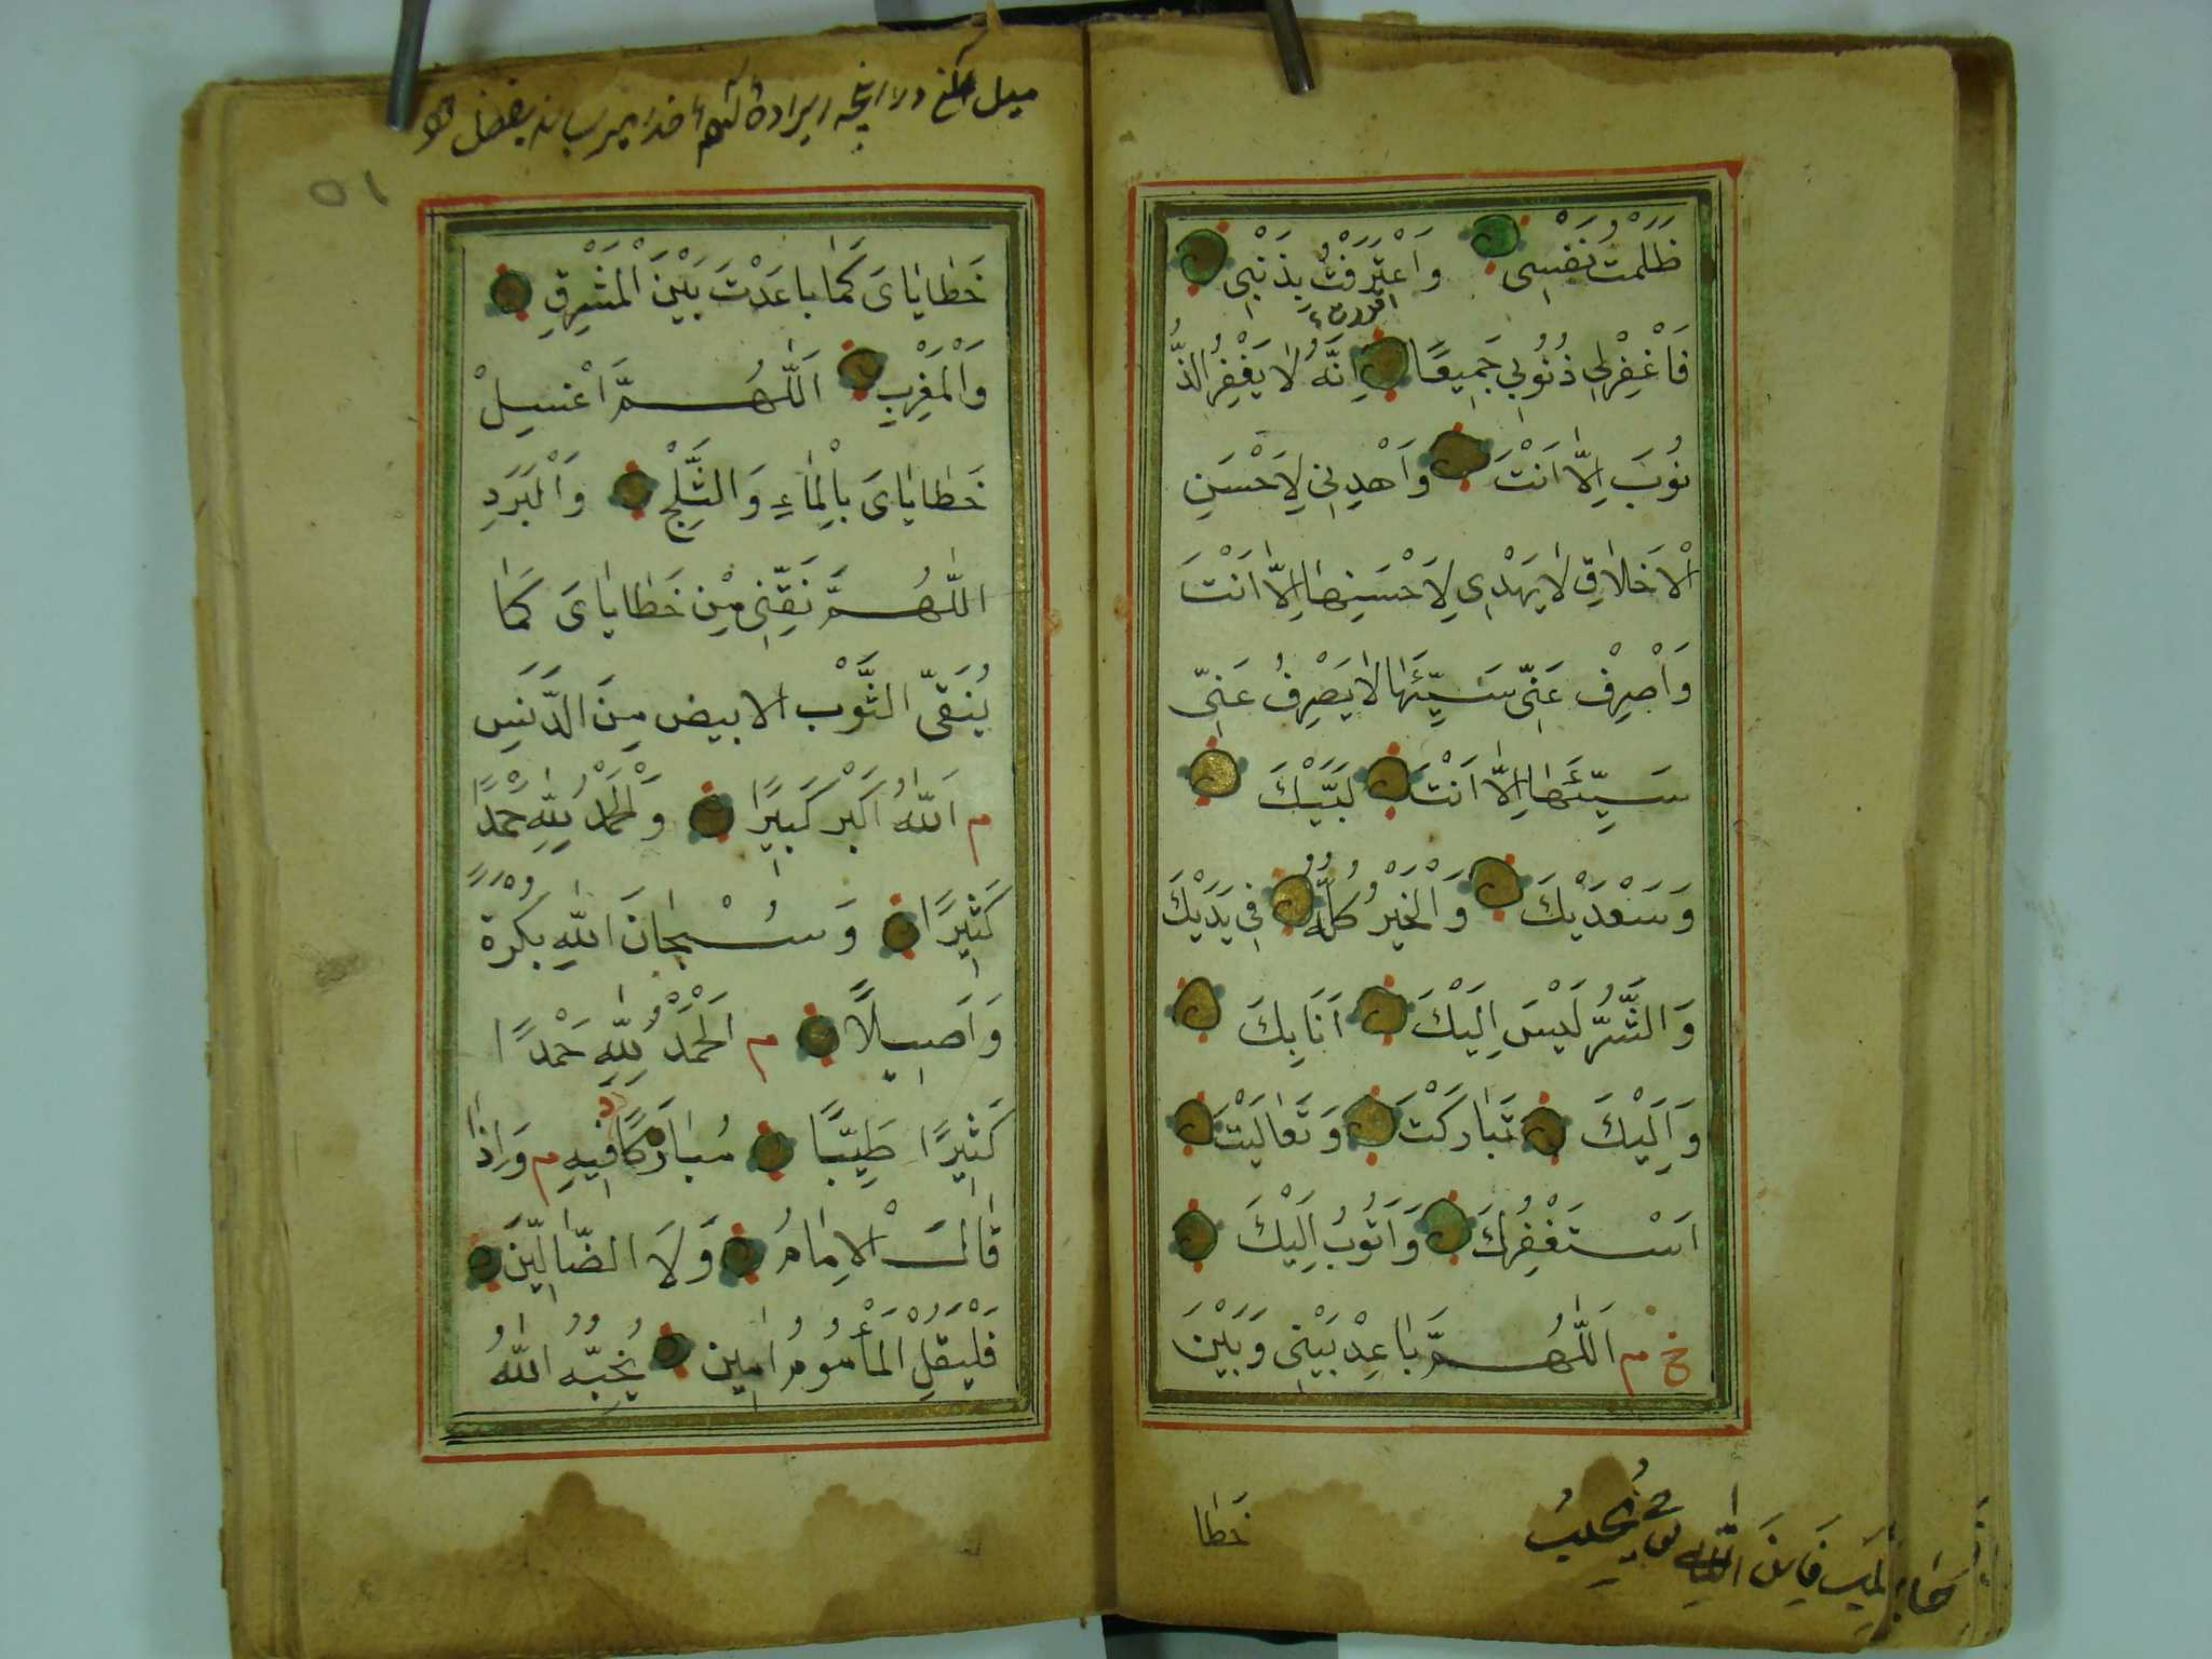 ظَلَمْتُ نَفْسِى وَاعْتَرَفْتُ بِذَنْبِى
فَاغْفِرْلِى ذُنُوْبِى جَمِيعًا اِنَّهُ لَا يَغْفِرُ الذُّ
نُوبَ اِلَّا اَنْتَ وَاهْدِنِى لِاَحْسَنِ
الْاَخْلَاقِ لَا يَهْدِى لِاَحْسَنِهَا اِلَّا اَنْتَ
وَاصْرِفْ عَنِّى سَيِّئَهَا لَا يَصْرِفُ عَنِّى
سَيِّئَهَا اِلَّا اَنْتَ لَبَّيْكَ
وَسَعْدَيْكَ وَالْخَيْرُ كُلُّهُ فِى يَدَيْكَ
وَالشَّرُّ لَيْسَ اِلَيْكَ اَنَا بِكَ
وَاِلَيْكَ تَبَارَكْتَ وَتَعَالَيْتَ
اَسْتَغْفِرُكَ وَاَتُوبُ اِلَيْكَ
خ م اَللّٰهُمَّ بَاعِدْ بَيْنِى وَبَيْنَ
خَطَا
٥١
خَطَايَاىَ كَمَا بَاعَدْتَ بَيْنَ الْمَشْرِقِ
وَالْمَغْرِبِ اَللّٰهُمَّ اغْسِلْ
خَطَايَاىَ بِالْمَاءِ وَالثَّلْجِ وَالْبَرَدِ
اللّٰهُمَّ نَقِّنِى مِنْ خَطَايَاىَ كَمَا
يُنَقَّى الثَّوْب الابيض مِنَ الدَّنَسِ
م اَللّٰهُ اَكْبَر كَبِيْرًا وَالْحَمْدُ لِلّٰهِ حَمْدًا
كَثِيْرًا وَسُبْحَانَ اللّٰهِ بُكْرَةً
وَاَصِيلًا م اَلْحَمْدُ لِلّٰهِ حَمْدًا
كَثِيْرًا طَيِّبًا مُبَارَكًا فِيْهِ م وَاِذَا
قَالَ الْاِمَامُ وَلَا الضَّالِّيْنَ
فَلْيَقُلِ الْمَأْمُوْمُ اٰمِين يُحِبُّهُ اللّٰهُ